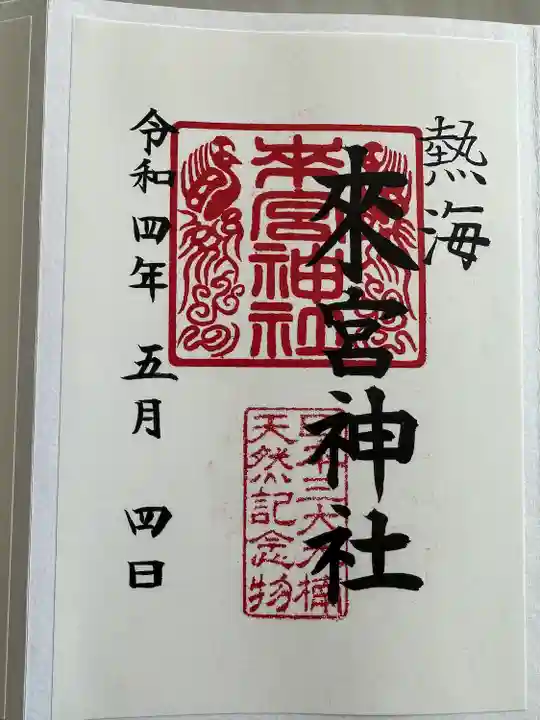 熱海
來宮神社
來宮神社
日本三大大楠
天然記念物
令和四年 五月 四日